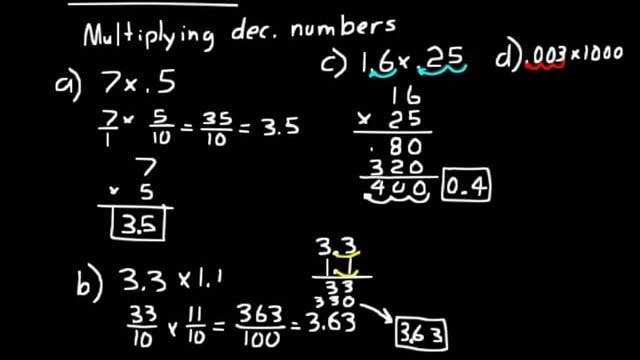 Multiplying dec. numbers
a) 7 x .5
7/1 x 5/10 = 35/10 = 3.5
7
x 5
3.5
b) 3.3 x 1.1
33/10 x 11/10 = 363/100 = 3.63
3.3
1 1
33
330
3.63
c) 1.6 x .25
16
x 25
.80
320
400
0.4
d) .003 x 1000